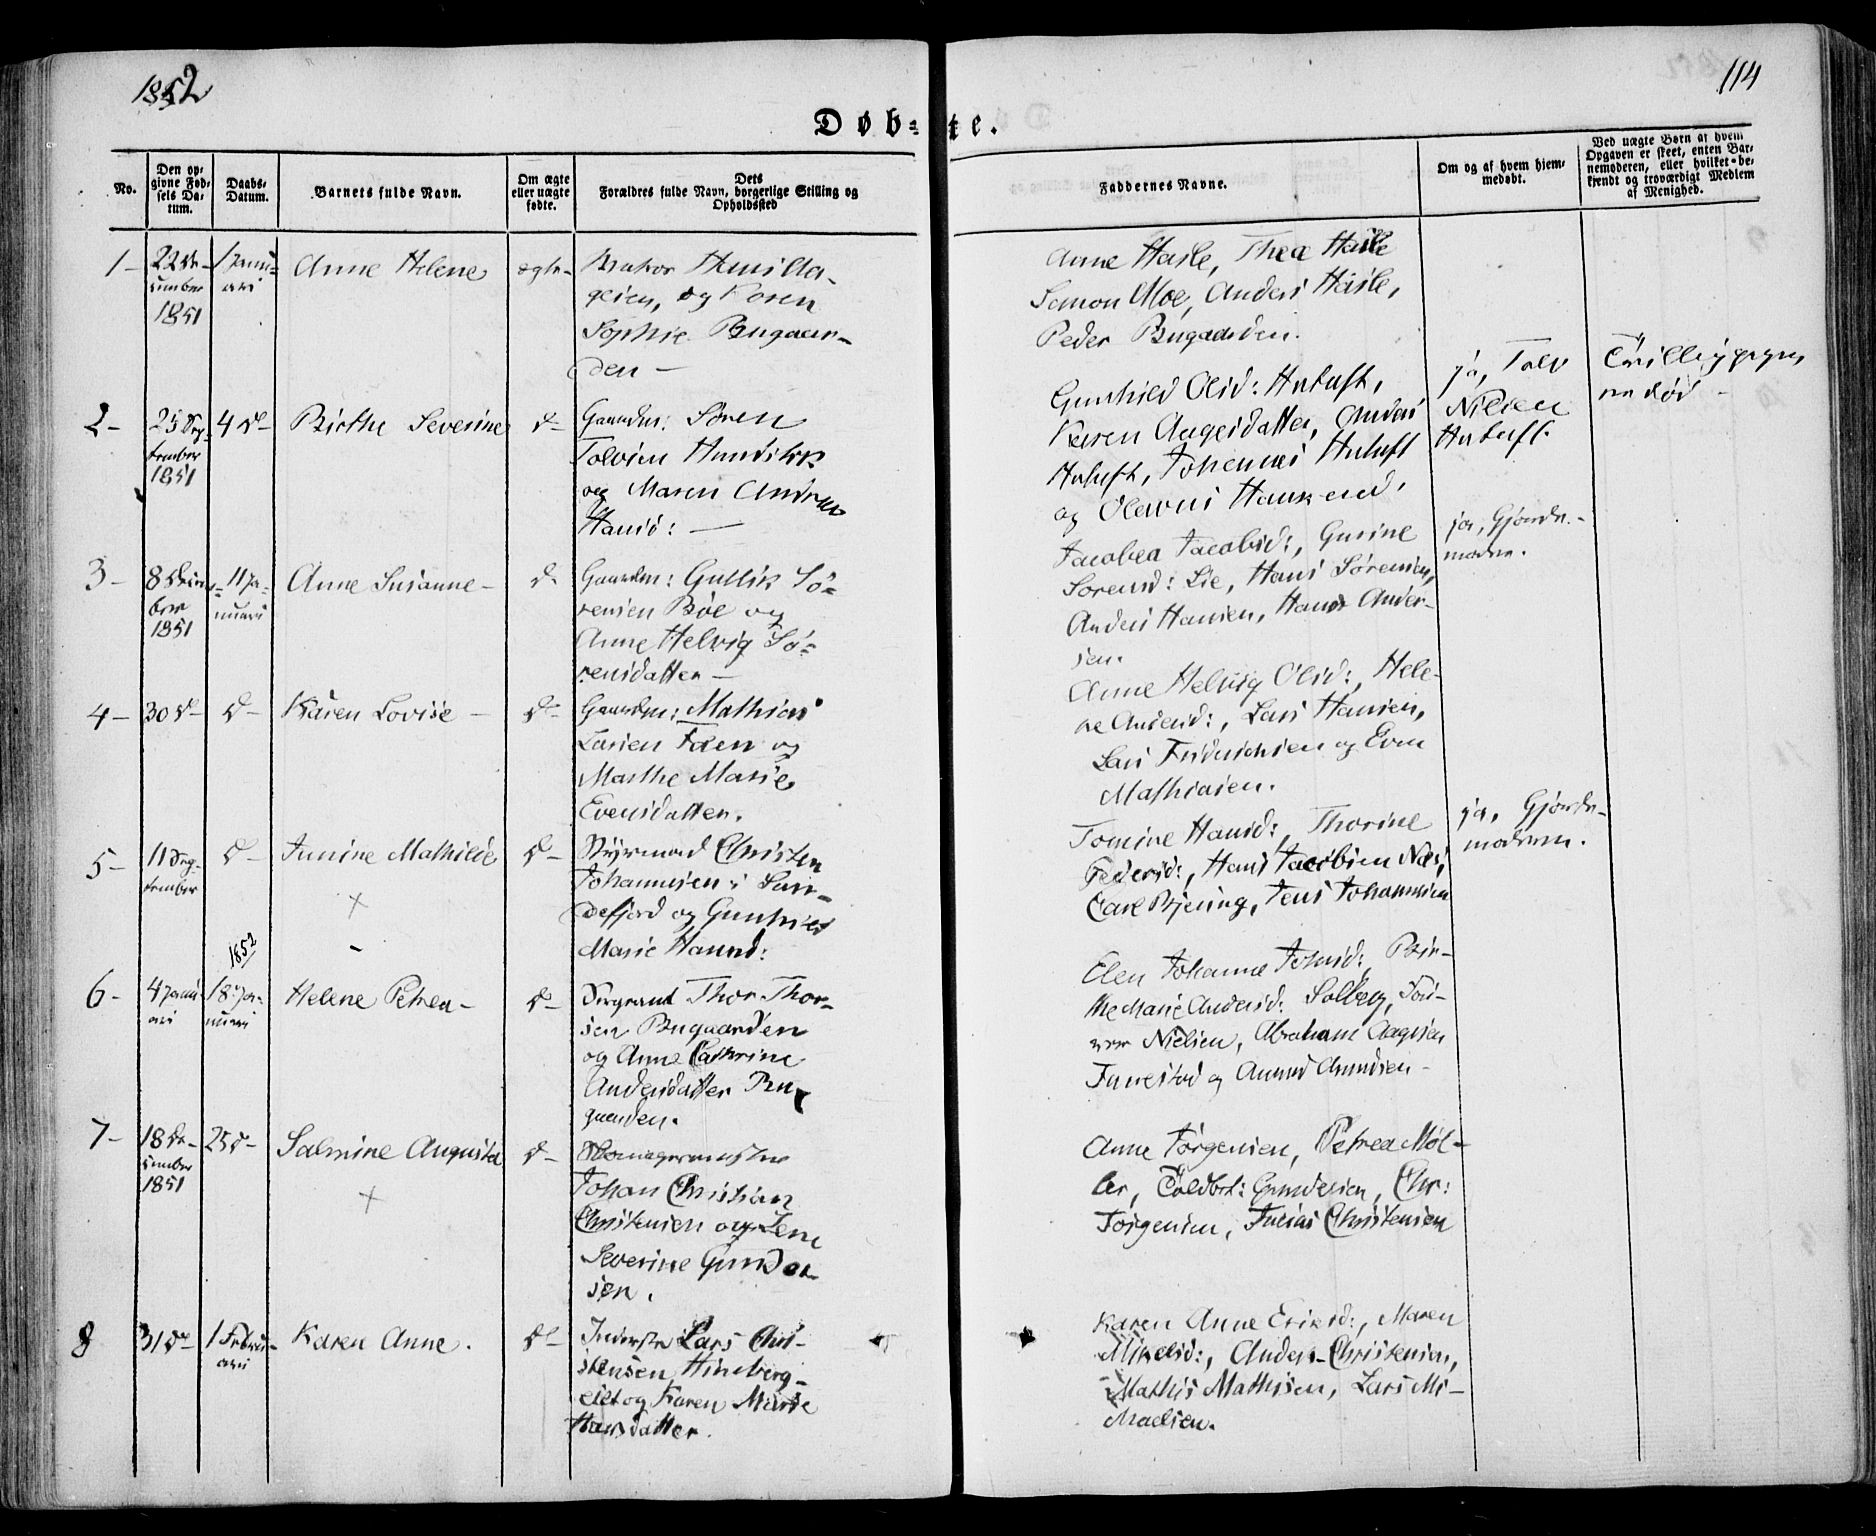 1852
114
Døb-te.
No.
Den op-
givne Fød-
sels Da-
tum.
Daabs-
Datum.
Barnets fulde Navn.
Om ægte
eller uægte
fødte.
Dets
Forældres fulde Navn, borgerlige Stilling og
Opholdssted
Faddernes Navne.
Om og af hvem hjem-
medøbt.
Ved uægte Børn at hvem
Opgaven er skeet, enten Bar-
nemoderen, eller hvilket be-
kjendt og troværdigt Medlem
af Menighed.
1- 22 De-
cember
1851
1 Janu-
ari
Anne Helene
ægte-
og Karen
Sophie Bugaar-
den -
Anne Hasle, Thea Hasle
Simon Moe, Anders Hasle,
Peder Bugaarden.
2- 25 Sep-
tember
1851
4 d-
Birthe Severine
d-
Gaardm: Søren
og Maren Andrea
Hansd: -
Gunhild Olsd: Hvtuft,
Karen Aagesdatter, Anders
Hvtuft, Johannes Hvtuft
og Olavus
ja, Tolv
Nilsen
Hvtuft.
Tvillingpigen
er død -
3- 8 Decem-
ber
1851
11 Ja-
nuari
Anne Susanne-
d-
Gaardm: Gullik Sø-
rensen Bøe og
Anne Helvig Sø-
rensdatter -
Jacobea Jacobsd:, Gurine
Sørensd: Lie, Hans Sørensen,
Anders Hansen, Hans Ander-
sen.
ja, Gjorde-
moder.
4- 30 d-
d-
Karen Lovise -
d-
Gaardm: Mathias
Larsen Foen og
Marthe Marie
Evensdatter.
Anne Helvig Olsd:, Hele-
ne Andersd:, Lars Hansen,
Lars Friderichsen og Even
Mathiasen.
5- 11 Sep-
tember
d-
Junine Mathilde
d-
Styrmand Christen
Johannesen i San-
defjord og Gunhild
Marie Hansd:
Tomine Hansd:, Thorine
Pedersd:, Hans Jacobsen Næs,
Carl Bjering, Jens Johannesen
ja, Gjorde-
moderen.
1852
6- 4 Janu-
ari
18 Ja-
nuari
Helene Petrea-
d-
Sergeant Thor Thor-
sen Bugaarden
og Anne Cathrine
Andersdatter Bu-
gaarden.
Elen Johanne Johnsd: Bir-
the Marie Andersd: Solberg,
Nielsen, Abraham Aagesen
og Amund Amundsen-
7- 18 De-
cember
1851
25 d-
Salmine Augusta
d-
Johan Christian
Christensen og Lene
Severine Gunder-
sen.
Anne Jørgensen, Petrea Møl-
ler, Coldbet: Gundersen, Chr:
Jørgensen, Julias Christensen
8 31 d-
1 Febru-
ari
Karen Anne.
d-
Inderste Lars Chri-
stensen Hineberg-
eiet og Karen Marie
Hansdatter.
Karen Anne Eriksd:, Maren
Mikelsd:, Anders Christensen,
Mathis Mathisen, Lars Mi-
chaelsen.